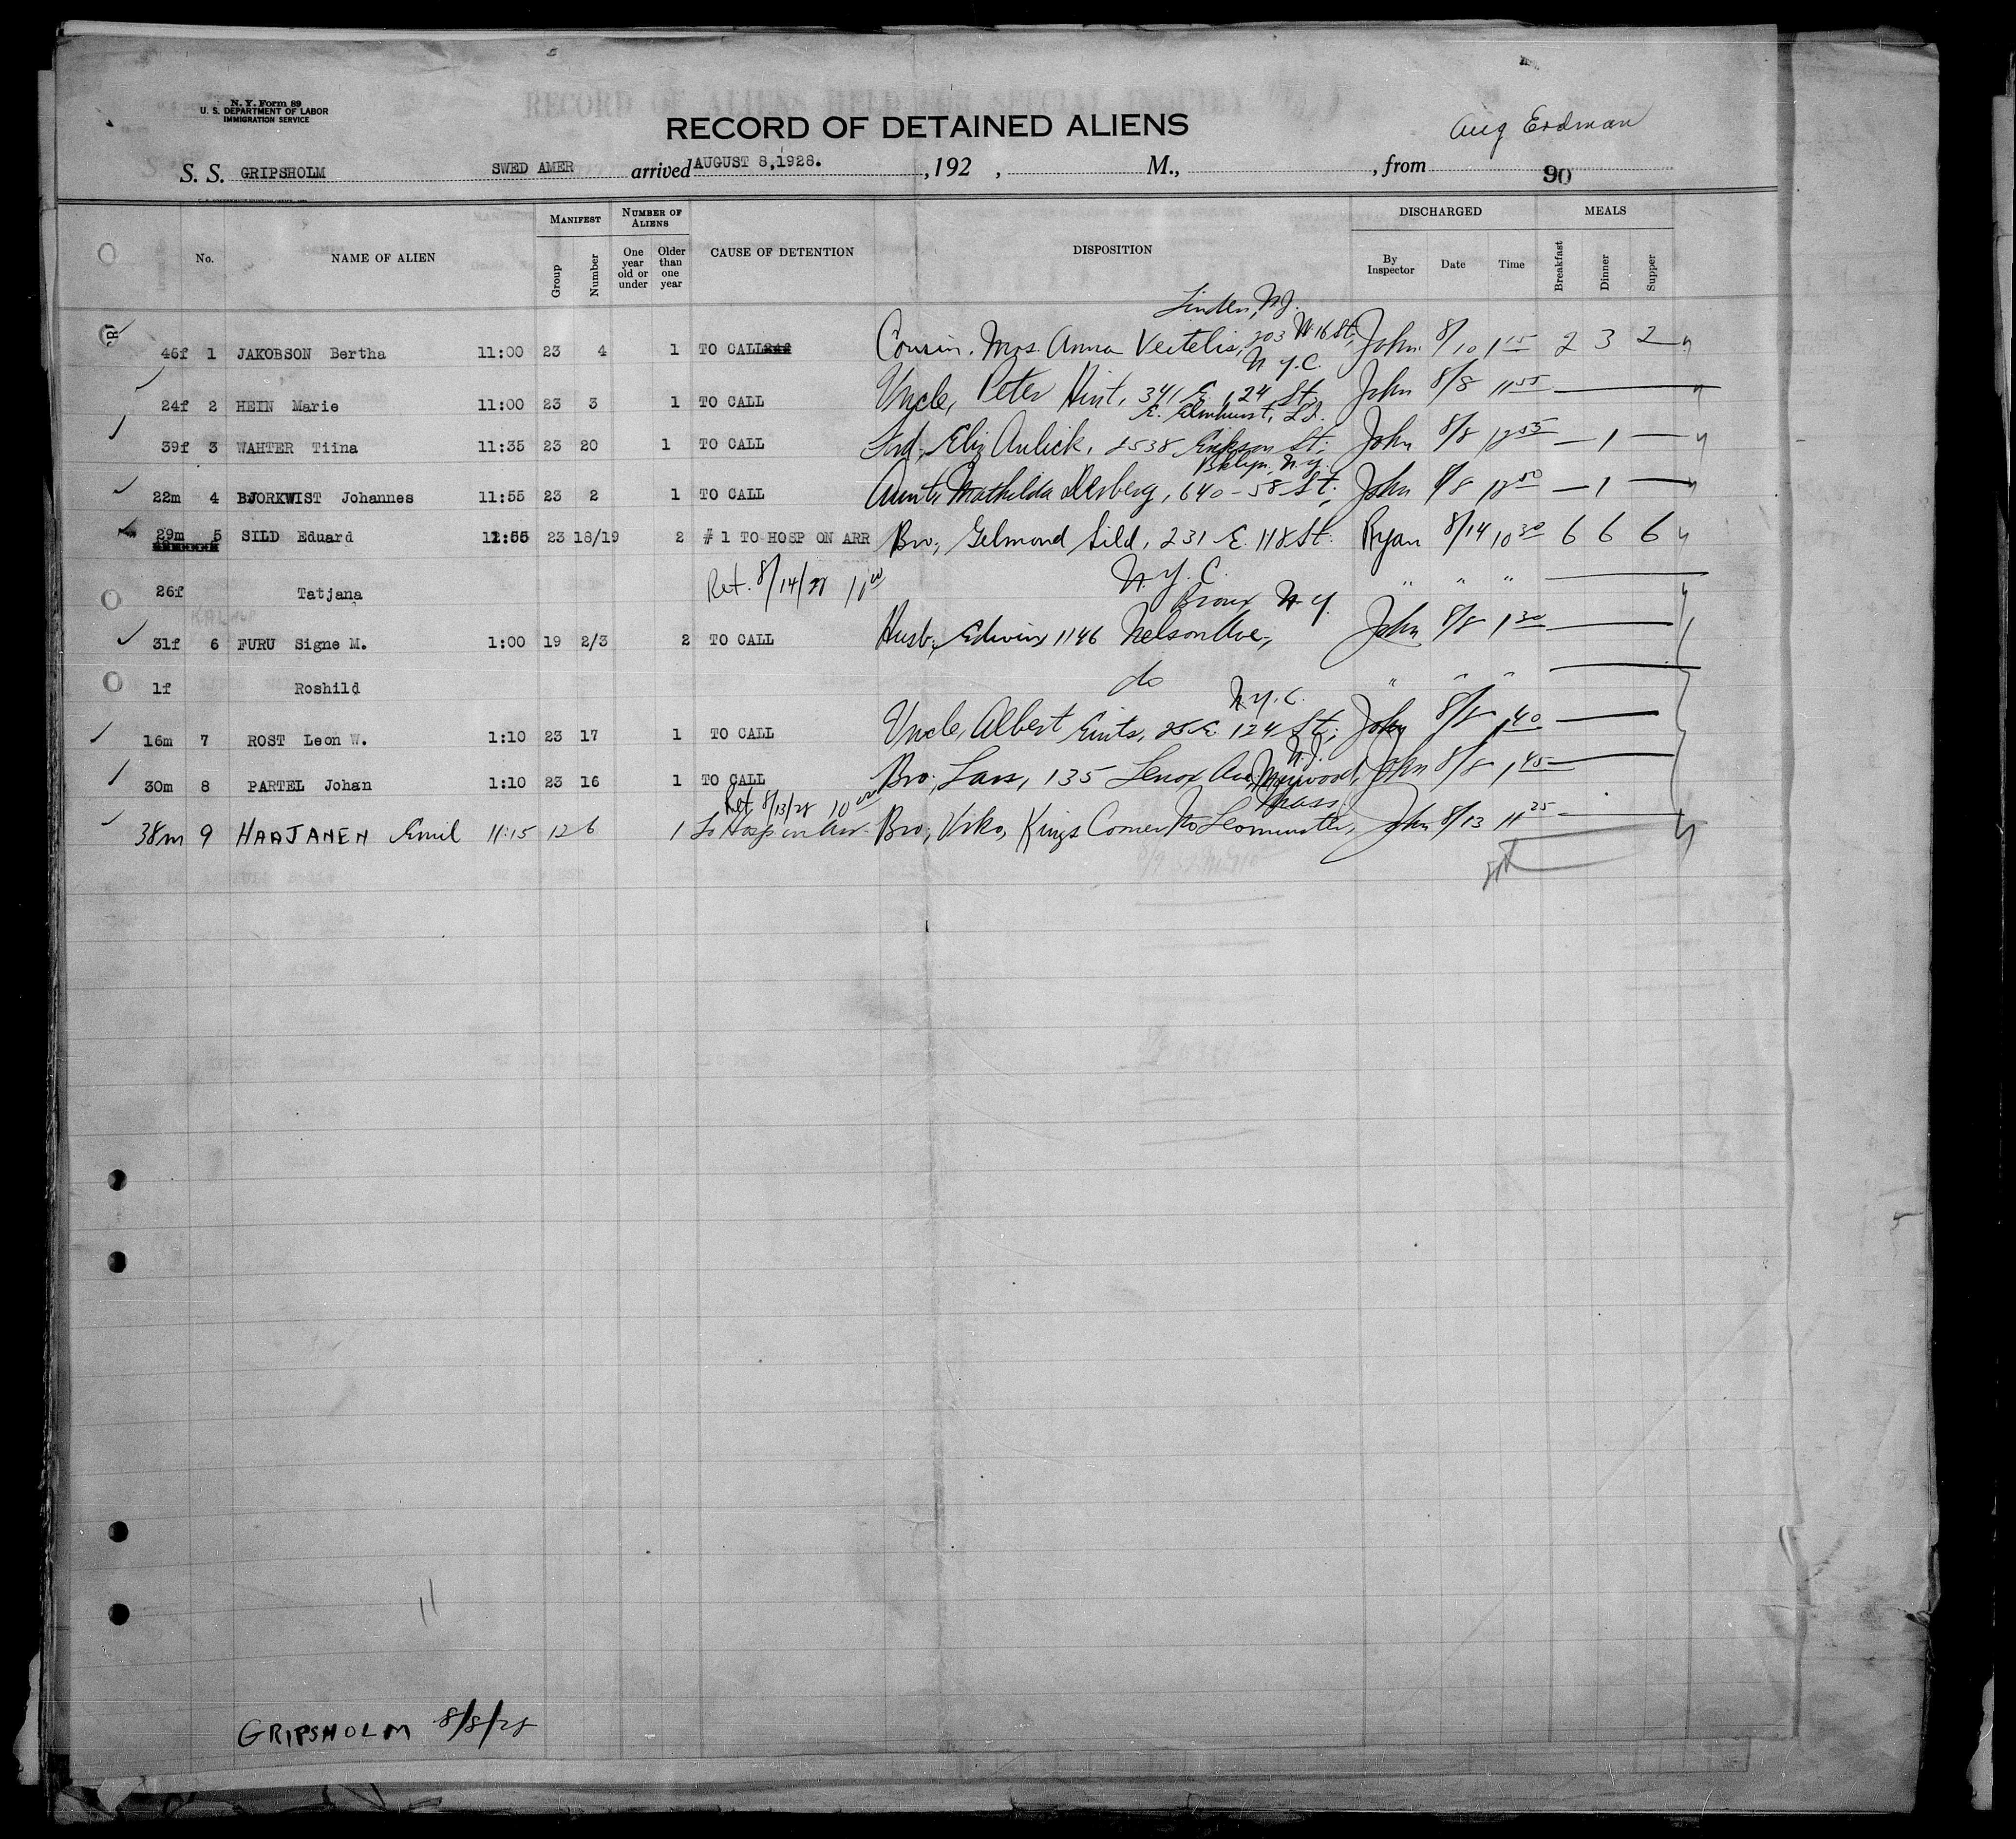 N. Y. Form 89
U. S. DEPARTMENT OF LABOR
IMMIGRATION SERVICE
RECORD OF DETAINED ALIENS
Aug Erdman
S. S. GRIPSHOLM SWED AMER arrived AUGUST 8,1928. , 192 , M., , from 90
No. NAME OF ALIEN MANIFEST Group Number NUMBER OF ALIENS One year old or under Older than one year CAUSE OF DETENTION DISPOSITION DISCHARGED By Inspector Date Time MEALS Breakfast Dinner Supper
Linden, N.J.
46f 1 JAKOBSON Bertha 11:00 23 4 1 TO CALL Cousin, Mrs. Anna Veitelis, 203 W 16 St, John 8/10 1 15 2 3 2
N.Y.C.
24f 2 HEIN Marie 11:00 23 3 1 TO CALL Uncle, Peter Hint, 341 E. 124 St. John 8/8 11 55
E. Elmhurst, L.I.
39f 3 WAHTER Tiina 11:35 23 20 1 TO CALL Frd, Eliz Aulick, 2538 Erikson St; John 8/8 12 55 — 1 —
Bklyn, N.Y.
22m 4 BJORKWIST Johannes 11:55 23 2 1 TO CALL Aunt, Mathilda 640 - 58 St; John 8/8 12 50 — 1 —
29m 5 SILD Eduard 11:55 23 18/19 2 # 1 TO HOSP ON ARR Bro, Gelmond Sild, 231 E. 118 St. Ryan 8/14 10 30 6 6 6
26f Tatjana Ret. 8/14/28 11 00 N.Y.C. " " "
Bronx N.Y.
31f 6 FURU Signe M. 1:00 19 2/3 2 TO CALL Husb, Edwin 1146 Nelson Ave, John 8/8 1 30
1f Roshild do " " "
N.Y.C.
16m 7 ROST Leon W. 1:10 23 17 1 TO CALL Uncle, Albert Eints, 25 E. 124 St; John 8/8 1 40
N.J.
30m 8 PARTEL Johan 1:10 23 16 1 TO CALL Bro, Lars, 135 Lenox Ave, Maywood, John 8/8 1 45
Ret. 8/13/28 10 00 Mass.
38m 9 HARJANEN Emil 11:15 12 6 1 To Hosp on Arr. Bro, Kings Corner Leominster, John 8/13 11 25
11
GRIPSHOLM 8/8/28